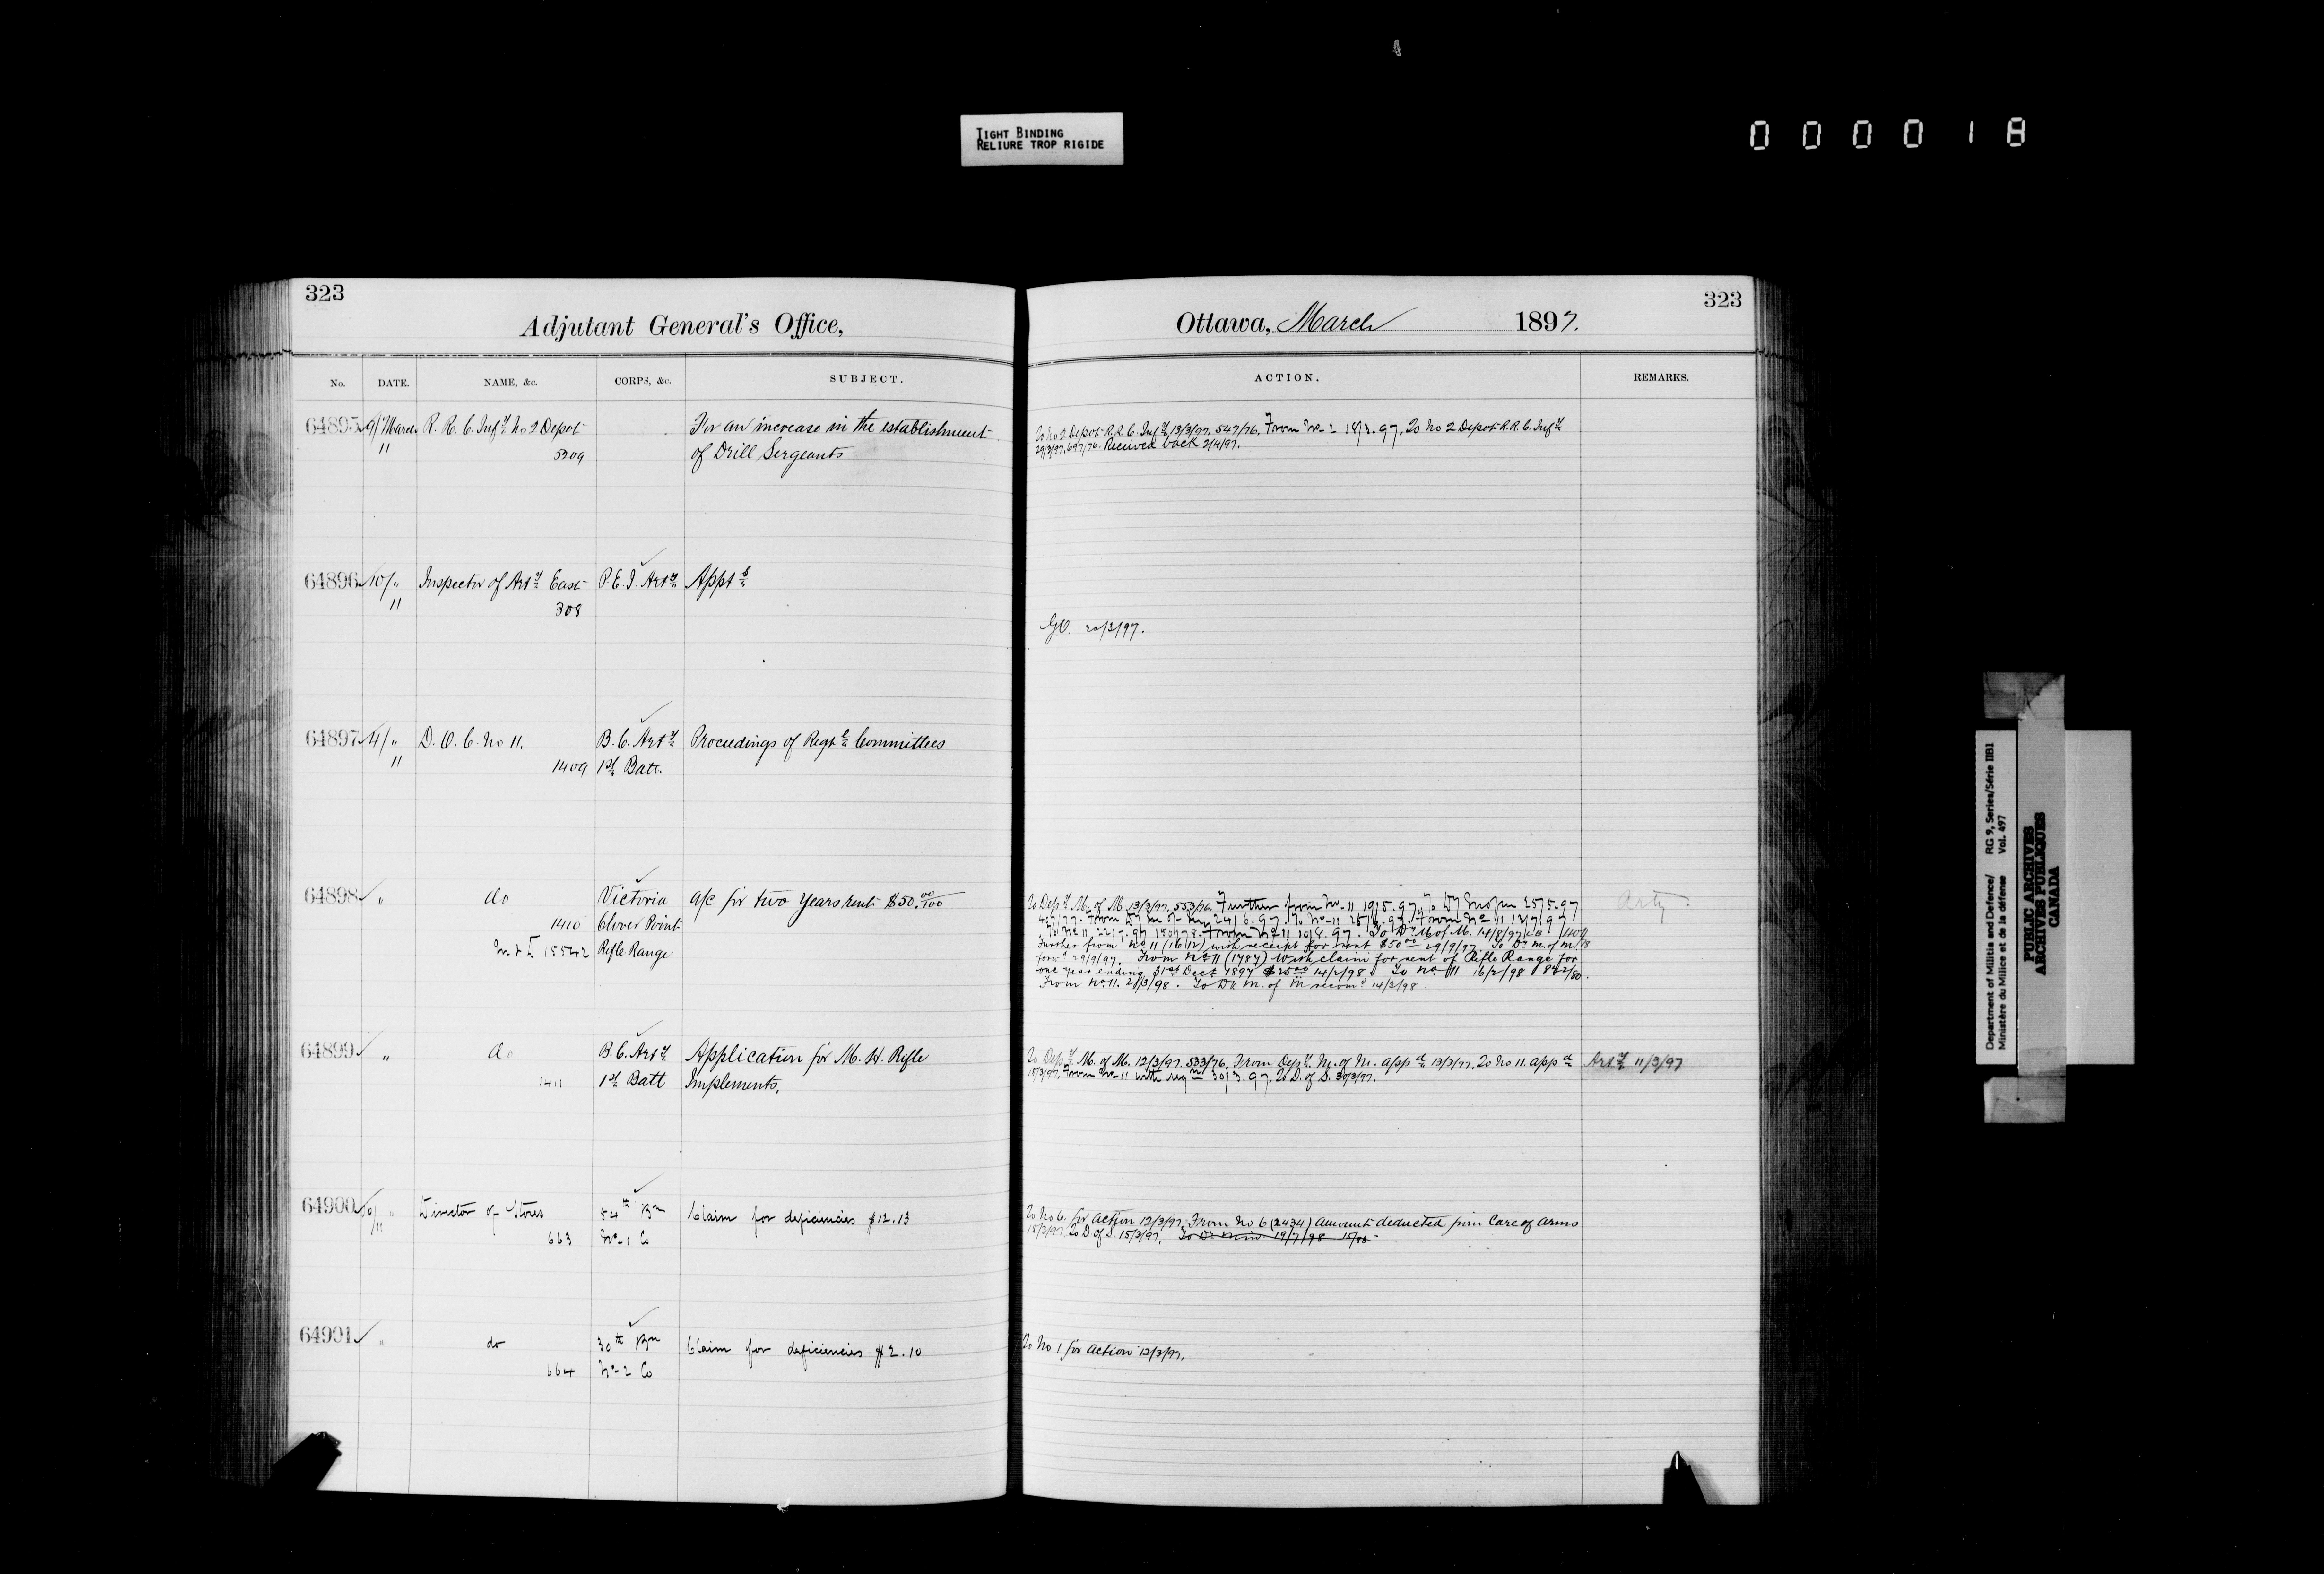 TIGHT BINDING
RELIURE TROP RIGIDE
0 0 0 0 1 8
323
Adjutant General's Office,
No. DATE. NAME, &c. CORPS, &c. SUBJECT.
64895 9/ March R. R. C. Infy No 2 Depot For an increase in the establishment
11 5309 of Drill Sergeants
64896 10/ " Inspector of Arty East P. E. I. Arty Appt
11 308
64897 4/ " D. O. C. No 11. B. C. Arty Proceedings of Regtl Committees
11 1409 1st Batt.
64898 " do Victoria a/c for two years rent $50.00/100
1410 Clover Point
15542 Rifle Range
64899 " do B. C. Arty Application for M. H. Rifle
1411 1st Batt Implements.
64900 10/ " Director of Stores 54th Bn Claim for deficiencies $12.13
11 663 No 1 Co
64901 " do 30th Bn Claim for deficiencies $2.10
664 No 2 Co
323
Ottawa, March 1897.
ACTION. REMARKS.
To No 2 Depot R. R. C. Infy 13/3/97. 547/76. From No 2 18/3.97. To No 2 Depot R. R. C. Infy
29/3/97. 697/76. Received back 2/4/97.
G.O. 20/3/97.
To Depy. M. of M. 13/3/97. 553/76. Further from No 11 19/5.97. To 25/5.97 Arty.
From 24/6.97. To No 11 From No 11 13/7.97
To No 11. 22/7.97 From No 11 10/8.97. To Dy M of M. 14/8/97
Further from No 11 with receipt for rent $50.00 29/9/97. To Dy. M. of M.
29/9/97. From No 11 (1787) with claim for rent of Rifle Range for
one year ending 31st Dect 1897 $25.00 14/2/98. To No 11 16/2/98
From No 11. 2/3/98. To Dy. M. of M. recomd 14/3/98
To Depy. M. of M. 12/3/97. 533/76. From Depy. M. of M. appd 13/3/97. To No 11. appd Arty 11/3/97
15/3/97. From No 11 with reqn 30/3.97. To D. of S. 30/3/97.
To No 6. for action 12/3/97. From No 6 (2434) amount deducted from Care of Arms
15/3/97. To D. of S. 15/3/97. 19/7/98
To No 1 for action 12/3/97.
Department of Militia and Defence/ RG 9, Series/Série IIB1
Ministère du Milice et de la défense Vol. 497
PUBLIC ARCHIVES
ARCHIVES PUBLIQUES
CANADA